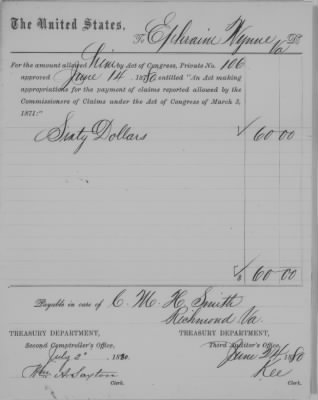 The United States,
To Ephraim Wynne Va Dr.
For the amount allowed him by Act of Congress, Private No. 106
approved June 14 1880 entitled "An Act making
appropriations for the payment of claims reported allowed by the
Commissioners of Claims under the Act of Congress of March 3,
1871:"
Sixty Dollars 60 00
$ 60 00
Payable in care of C. M. H. Smith
Richmond Va.
TREASURY DEPARTMENT, TREASURY DEPARTMENT,
Second Comptroller's Office, Third Auditor's Office,
July 2 1880. June 24 1880
Wm A. Saxton Kee
Clerk. Clerk.